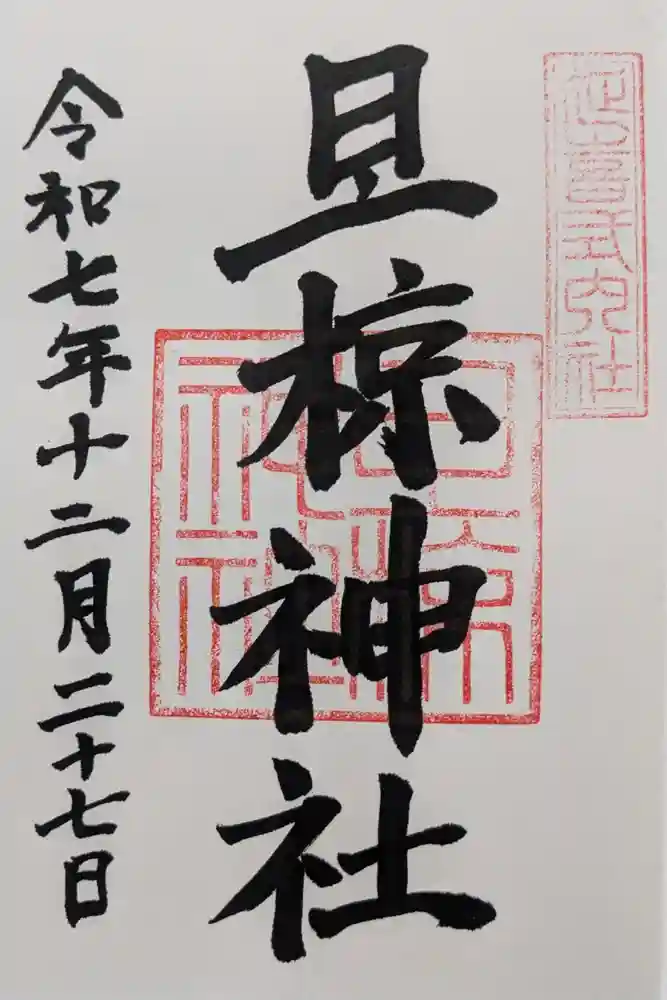 延喜式内社
旦椋神社
旦椋神社
令和七年十二月二十七日